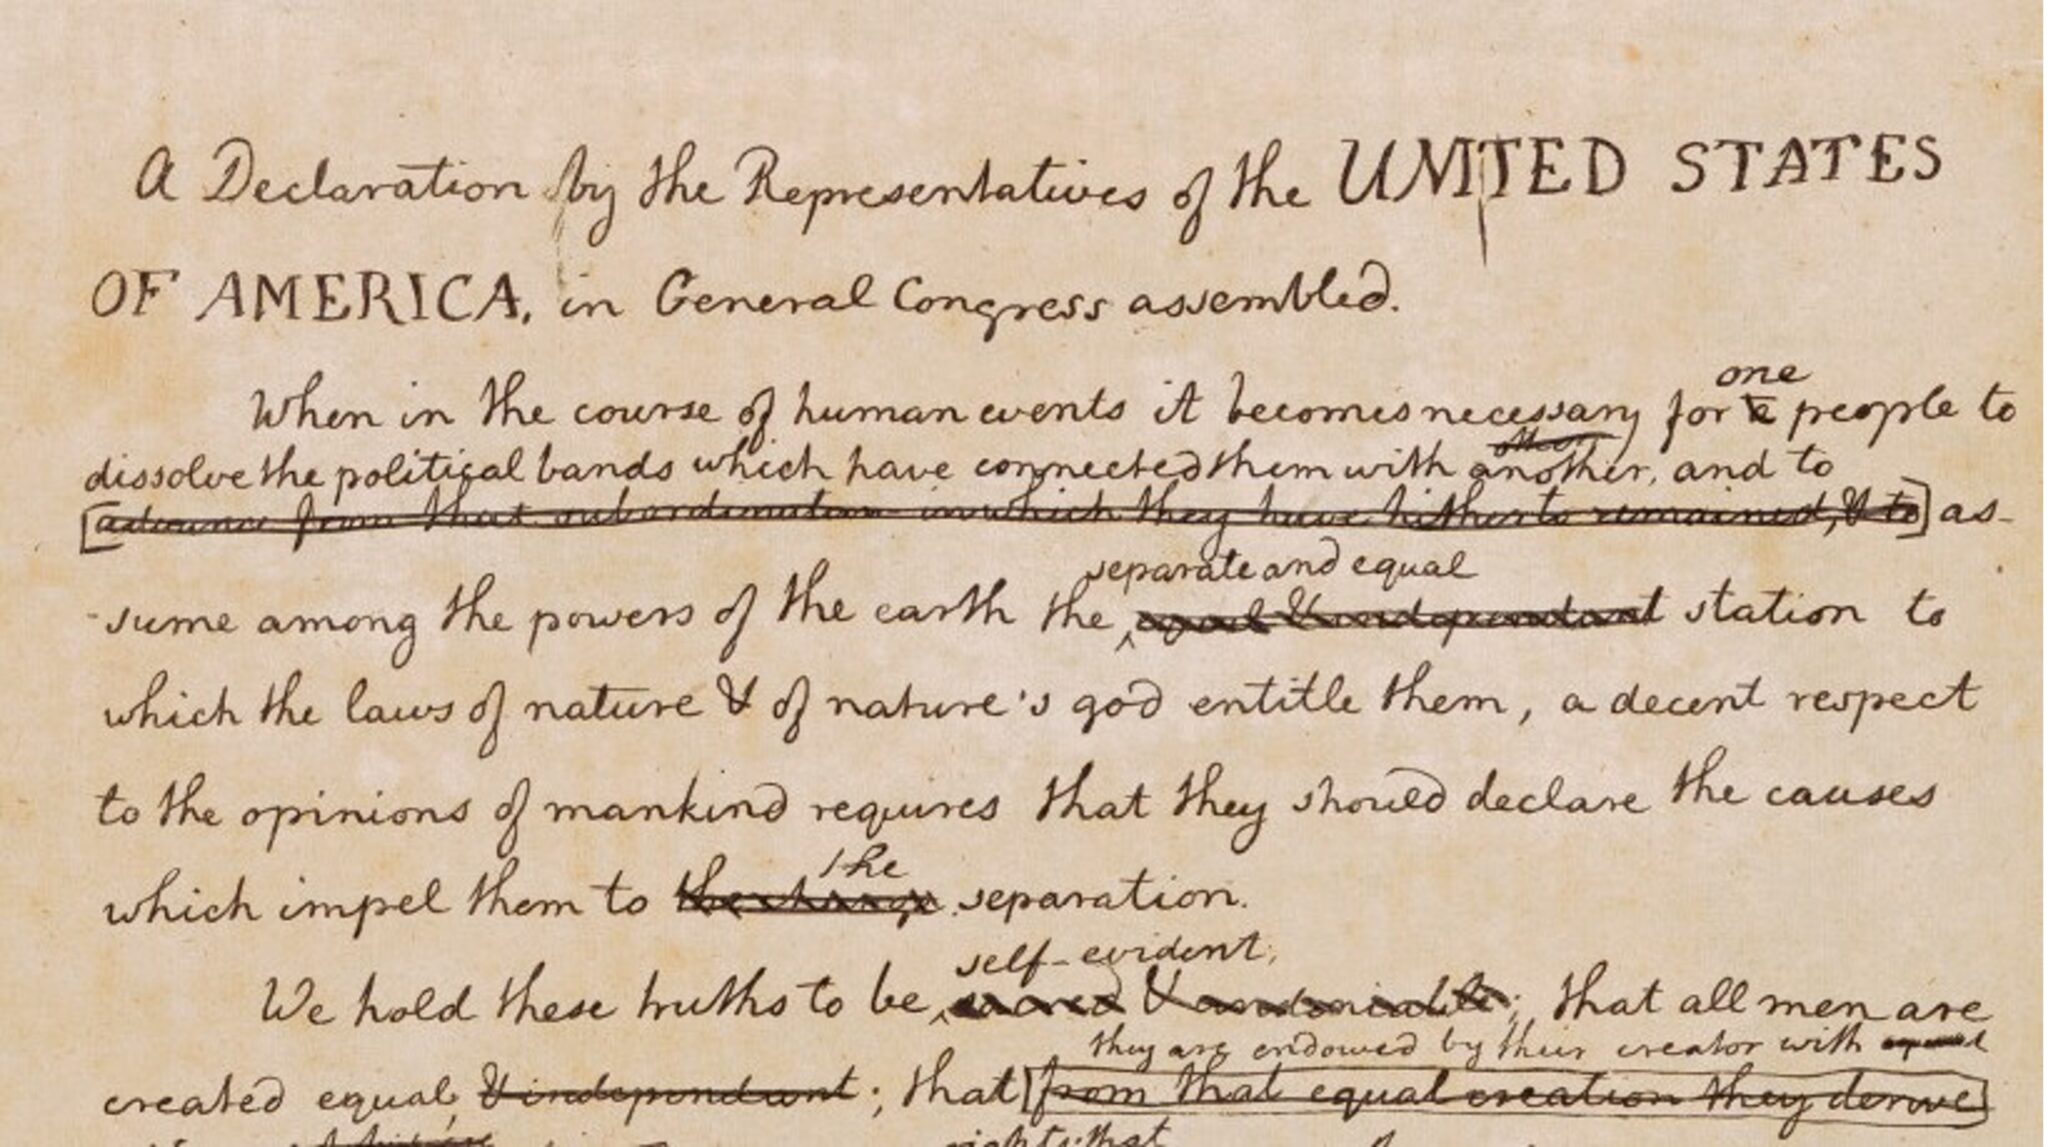 A Declaration by the Representatives of the UNITED STATES
OF AMERICA, in General Congress assembled.
one
When in the course of human events it becomes necessary for a people to
other
dissolve the political bands which have connected them with another, and to
[advance from that subordination in which they have hitherto remained, & to] as-
separate and equal
-sume among the powers of the earth the equal & independant station to
which the laws of nature & of nature's god entitle them, a decent respect
to the opinions of mankind requires that they should declare the causes
the
which impel them to the change separation.
self-evident;
We hold these truths to be sacred & undeniable; that all men are
they are endowed by their creator with
created equal & independant; that [from that equal creation they derive]
rights; that